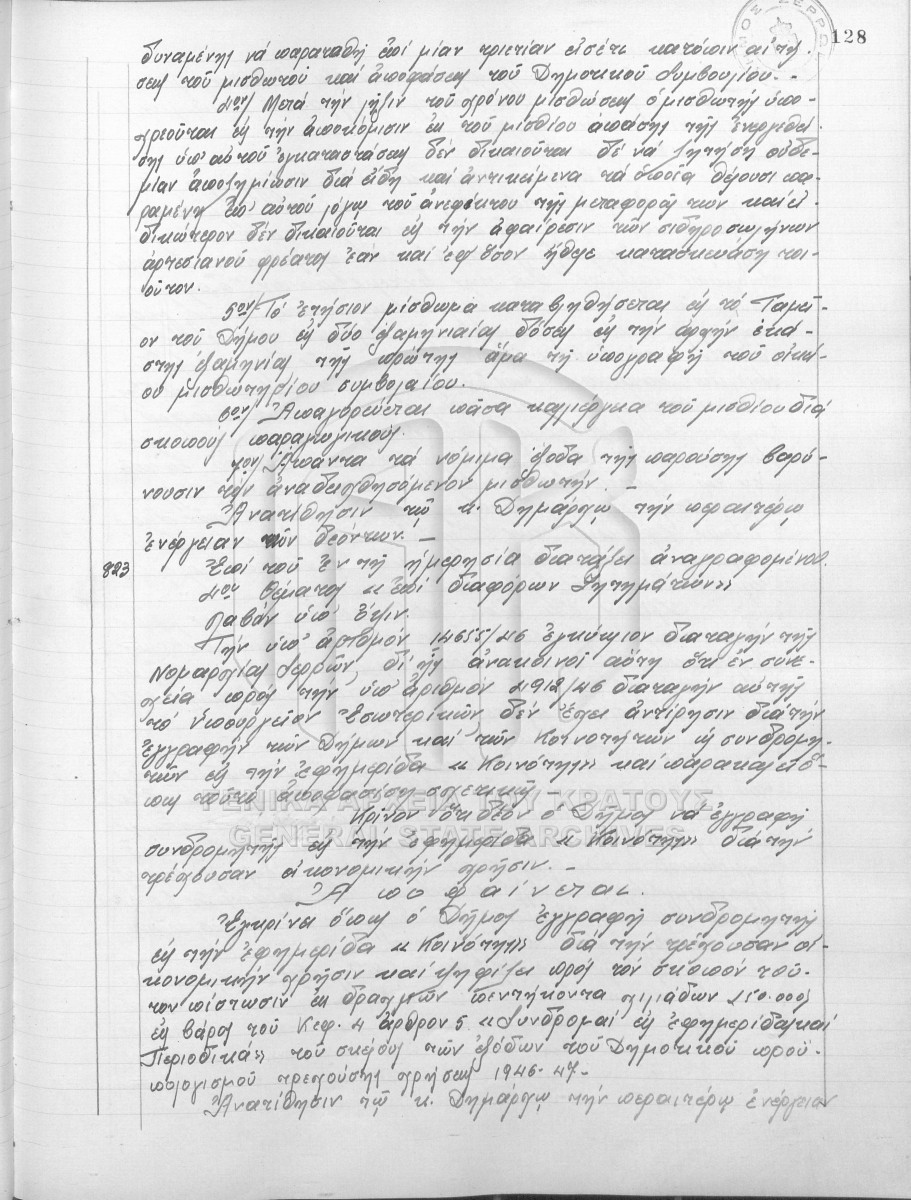 128
δυναμένης νά παραταθῇ ἐπί μίαν τριετίαν εἰσέτι κατόπιν αἰτή-
σεως τοῦ μισθωτοῦ καί ἀποφάσεως τοῦ Δημοτικοῦ Συμβουλίου.-
4ον/ Μετά τήν λῆξιν τοῦ χρόνου μισθώσεως ὁ μισθωτής ὑπο-
χρεοῦται εἰς τήν ἀποκόμισιν ἐκ τοῦ μισθίου ἁπάσης τῆς ἐνεργηθεί-
σης ὑπ' αὐτοῦ ἐγκαταστάσεως δέν δικαιοῦται δέ νά ζητήσῃ οὐδε-
μίαν ἀποζημίωσιν διά εἴδη καί ἀντικείμενα τά ὁποῖα θέλουσι πα-
ραμένῃ ἐπ' αὐτοῦ λόγῳ τοῦ ἀνεφίκτου τῆς μεταφορᾶς των καί εἰ-
δικώτερον δέν δικαιοῦται εἰς τήν ἀφαίρεσιν τῶν σιδηροσωλήνων
ἀρτεσιανοῦ φρέατος ἐάν καί ἐφ' ὅσον ἤθελε κατασκευάση τοι-
οῦτον.
5ον/ Τό ἐτήσιον μίσθωμα καταβληθήσεται εἰς τό Ταμεῖ-
ον τοῦ Δήμου εἰς δύο ἑξαμηνιαίας δόσεις εἰς τήν ἀρχήν ἑκά-
στης ἑξαμηνίας τῆς πρώτης ἅμα τῇ ὑπογραφῇ τοῦ οἰκεί-
ου μισθωτηρίου συμβολαίου.
6ον/ Ἀπαγορεύεται πᾶσα καλλιέργεια τοῦ μισθίου διά
σκοπούς παραγωγικούς.
7ον/ Ἅπαντα τά νόμιμα ἔξοδα τῆς παρούσης βαρύ-
νουσιν τόν ἀναδειχθησόμενον μισθωτήν.-
Ἀνατίθησιν τῷ κ. Δημάρχῳ τήν περαιτέρω
ἐνέργειαν τῶν δεόντων.-
823 Ἐπί τοῦ ἐν τῇ ἡμερησίᾳ διατάξει ἀναγραφομένου
4ου θέματος «ἐπί διαφόρων ζητημάτων»
Λαβόν ὑπ' ὄψιν.
Τήν ὑπ' ἀριθμόν 14655/46 ἐγκύκλιον διαταγήν τῆς
Νομαρχίας Σερρῶν, δι' ἧς ἀνακοινοῖ αὕτη ὅτι ἐν συνε-
χείᾳ πρός τήν ὑπ' ἀριθμόν 4912/46 διαταγήν αὐτῆς
τό Ὑπουργεῖον Ἐσωτερικῶν δέν ἔχει ἀντίρρησιν διά τήν
ἐγγραφήν τῶν Δήμων καί τῶν Κοινοτήτων ὡς συνδρομη-
τῶν εἰς τήν ἐφημερίδα «Κοινότης» καί παρακαλεῖ ὅ-
πως ἀποφασίσῃ σχετικῶς
Κρίνον ὅτι δέον ὁ Δῆμος νά ἐγγραφῇ
συνδρομητής εἰς τήν ἐφημερίδα «Κοινότης» διά τήν
τρέχουσαν οἰκονομικήν χρῆσιν.-
Ἀ π ο φ α ί ν ε τ α ι.
Ἐγκρίνει ὅπως ὁ Δῆμος ἐγγραφῇ συνδρομητής
εἰς τήν ἐφημερίδα «Κοινότης» διά τήν τρέχουσαν οἰ-
κονομικήν χρῆσιν καί ψηφίζει πρός τόν σκοπόν τοῦ-
τον πίστωσιν ἐκ δραχμῶν πεντήκοντα χιλιάδων (50.000)
εἰς βάρος τοῦ Κεφ. 4 ἄρθρον 5 «Συνδρομαί εἰς ἐφημερίδας καί
Περιοδικά» τοῦ σκέλους τῶν ἐξόδων τοῦ Δημοτικοῦ προϋ-
πολογισμοῦ τρεχούσης χρήσεως 1946-47.-
Ἀνατίθησιν τῷ κ. Δημάρχῳ τήν περαιτέρω ἐνέργειαν
ΓΕΝΙΚΑ ΑΡΧΕΙΑ ΤΟΥ ΚΡΑΤΟΥΣ
GENERAL STATE ARCHIVES